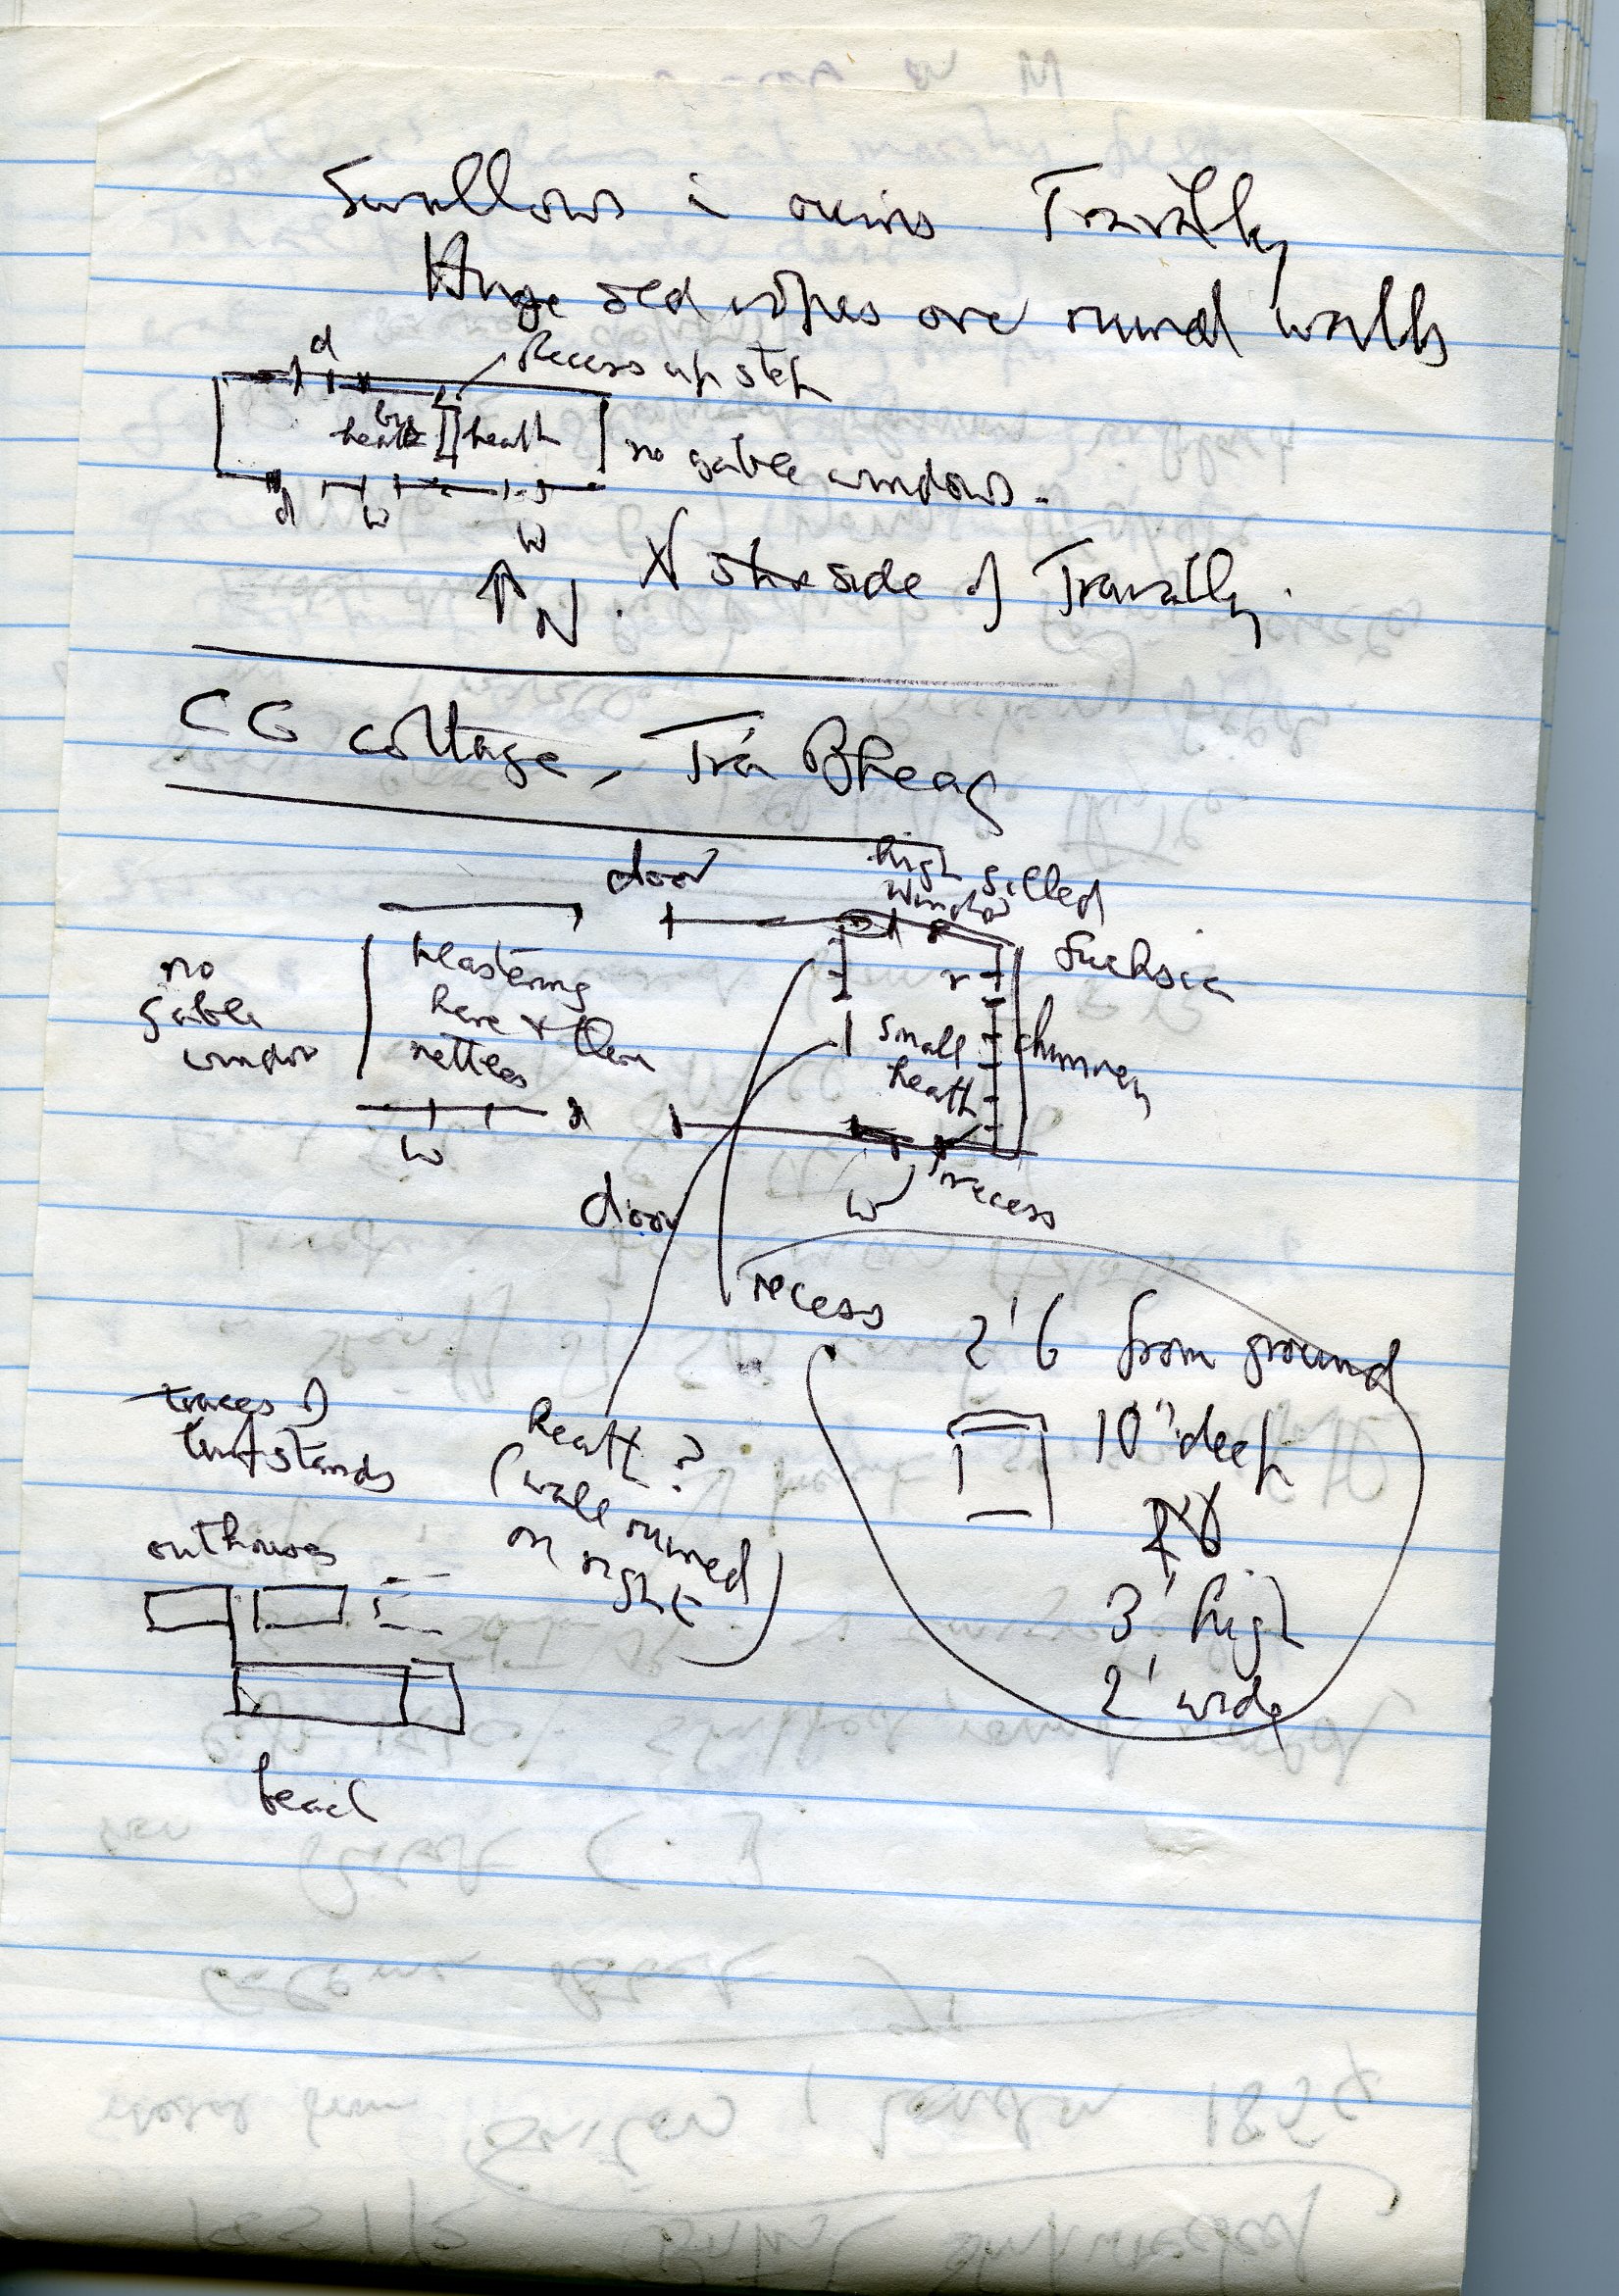 Swallows in ruins Travally
Huge old ropes over ruined walls
d
Recess up step
big
hearth
hearth
no gable windows.
d
w
w
N.
side of Travally.
CG cottage, Trá Bheag
door
high silled
window
no
gable
window
plastering
here & there
nettles
fuchsia
r
small
hearth
chimney
w
door
w
recess
recess
2'6 from ground
10" deep
3' high
2' wide
traces of
turfstands
Hearth?
(wall ruined
on right)
outhouses